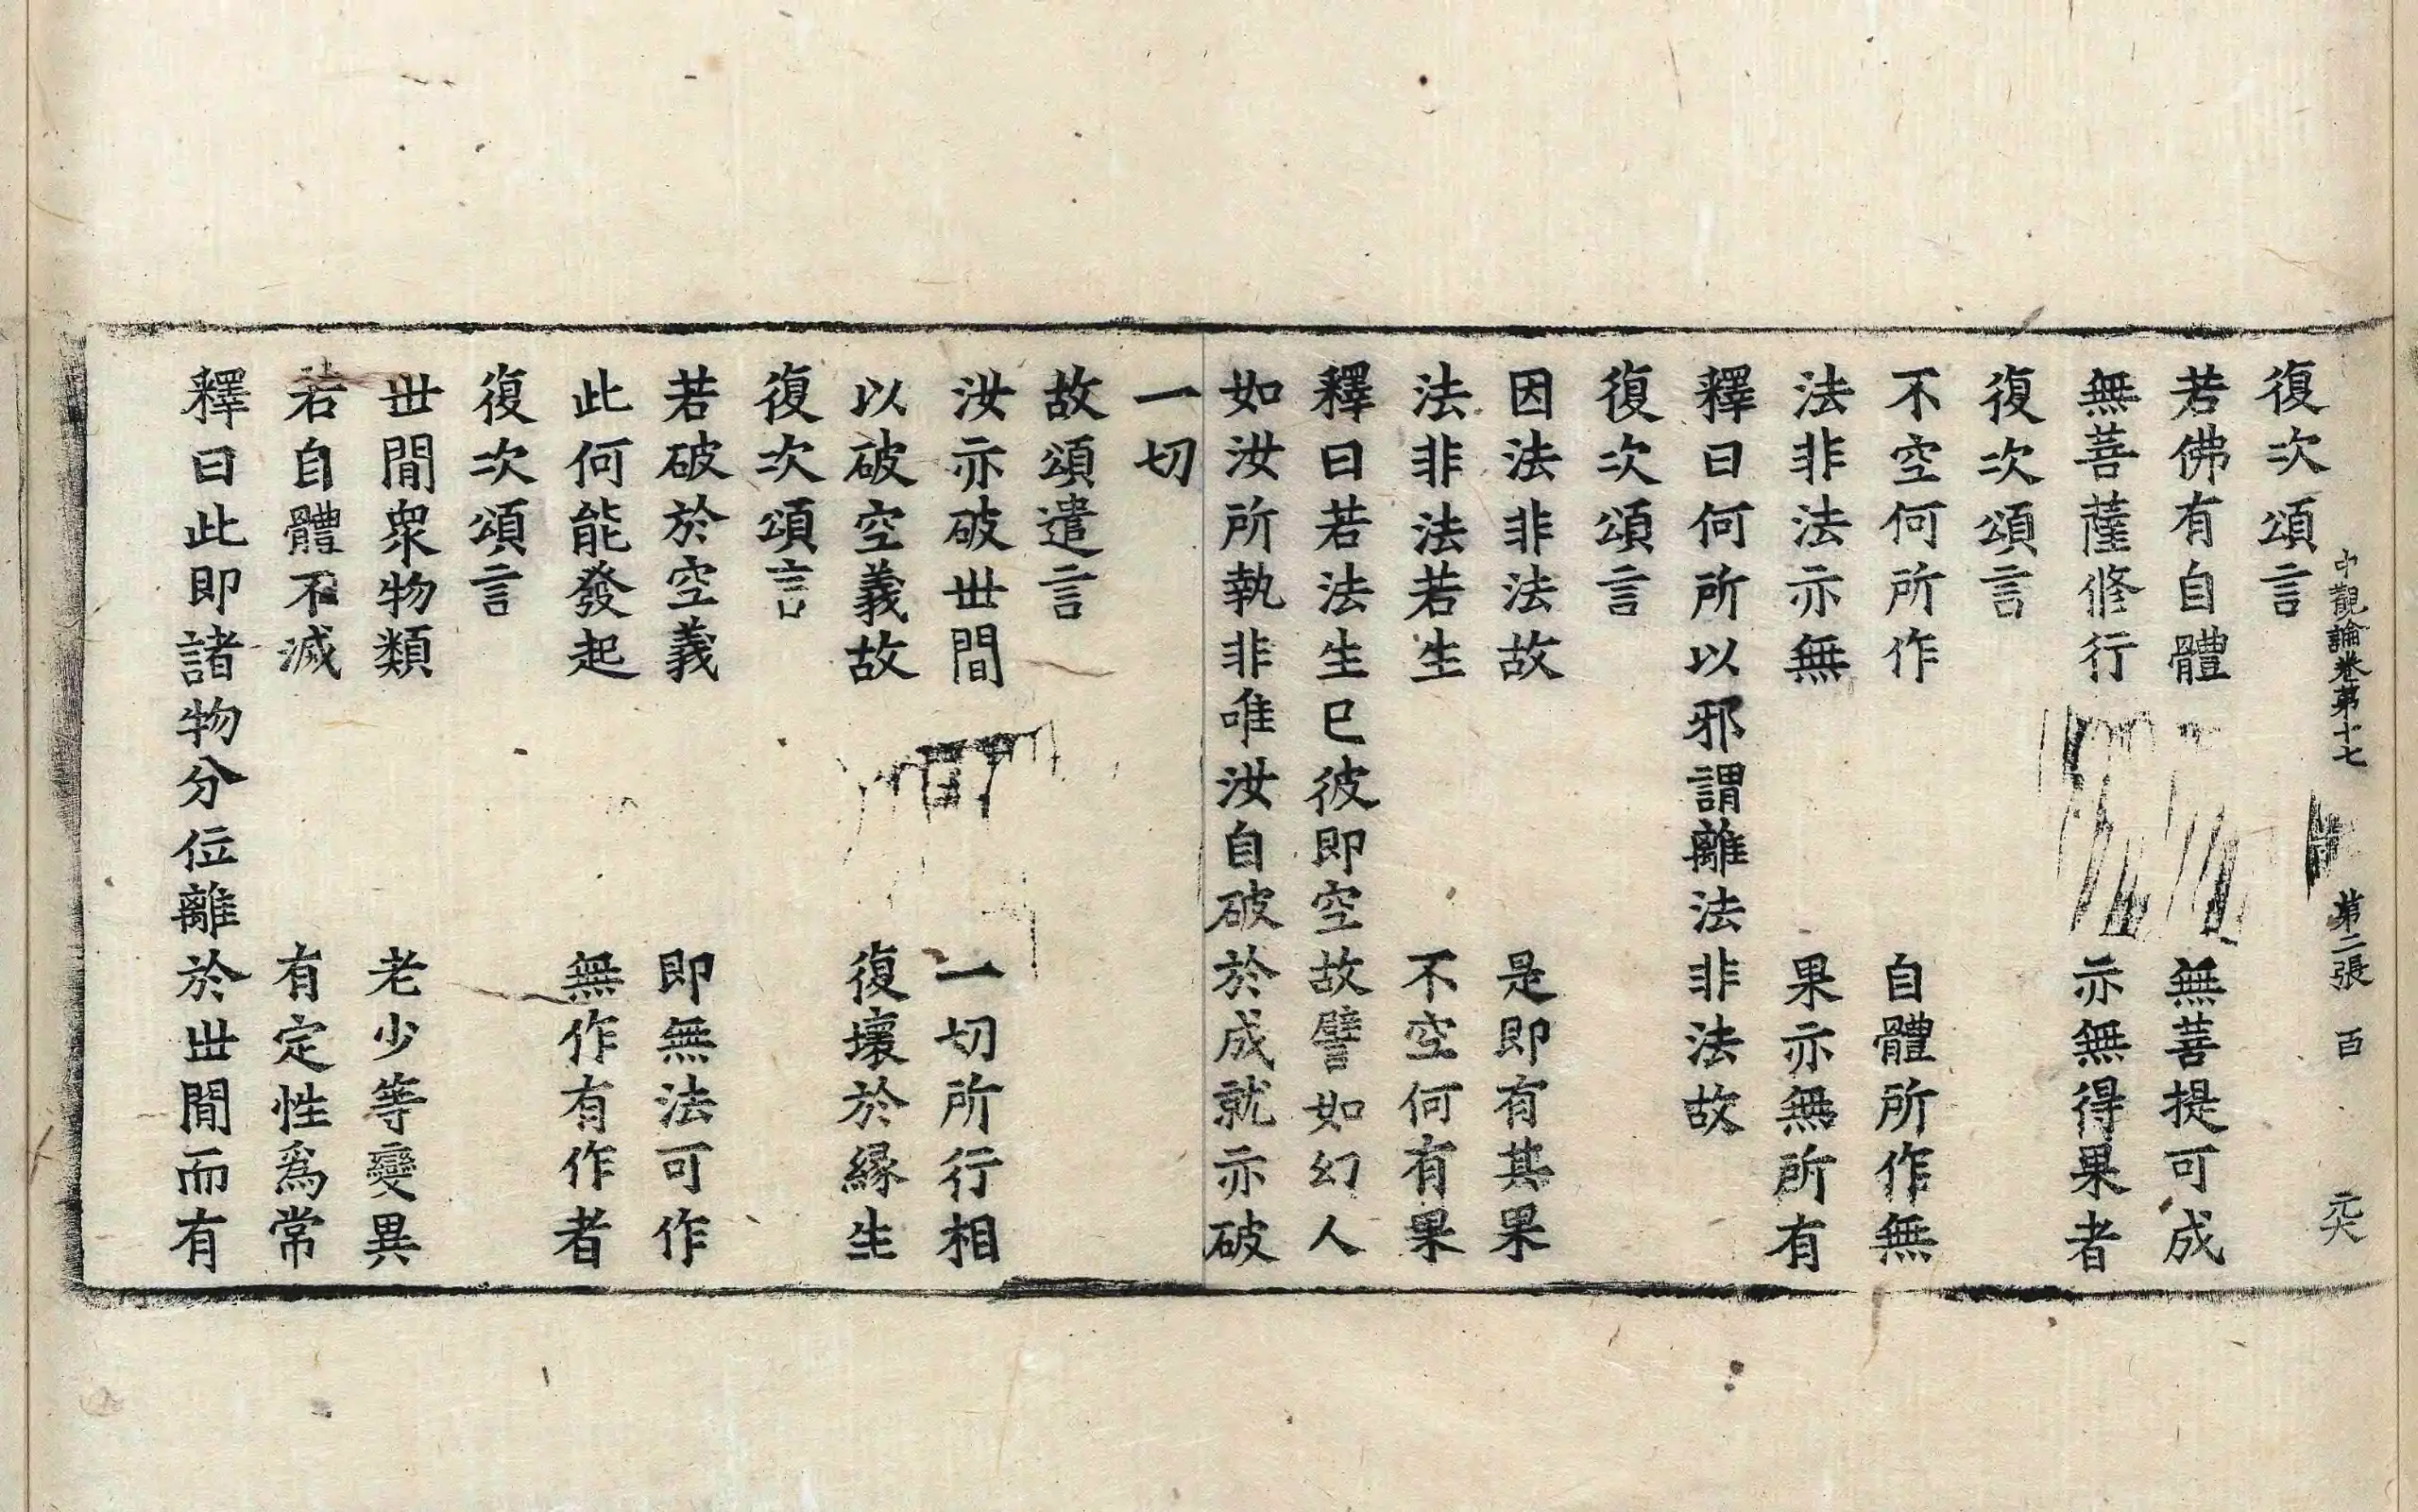 中觀論卷第十七　第二張　百
復次頌言
若佛有自體　無菩提可成
無菩薩修行　亦無得果者
復次頌言
不空何所作　自體所作無
法非法亦無　果亦無所有
釋曰何所以邪謂離法非法故
復次頌言
因法非法故　是即有其果
法非法若生　不空何有果
釋曰若法生已彼即空故譬如幻人
如汝所執非唯汝自破於成就亦破
一切
故頌遣言
汝亦破世間　一切所行相
以破空義故　復壞於緣生
復次頌言
若破於空義　即無法可作
此何能發起　無作有作者
復次頌言
世間眾物類　老少等變異
若自體不滅　有定性為常
釋曰此即諸物分位離於世間而有